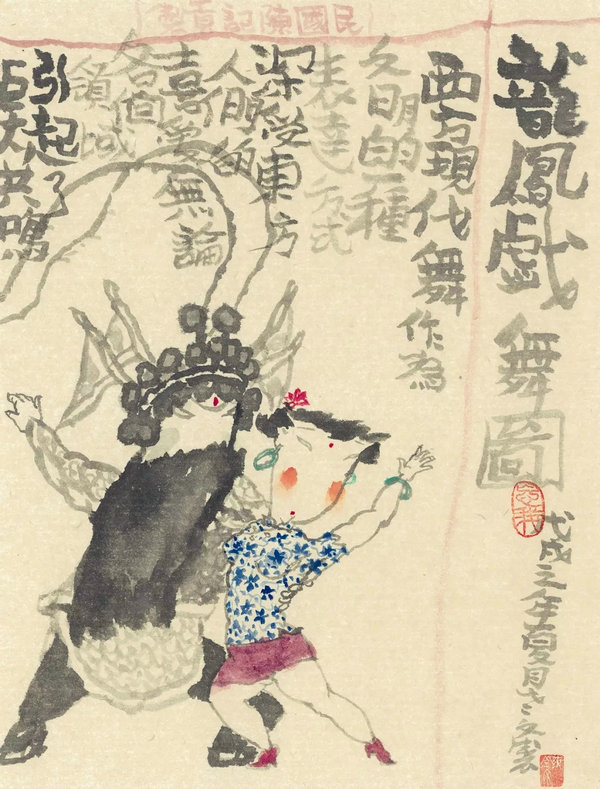 民國陳記貢製
龍鳳戲舞圖
戊戌之年夏月
西方現代舞作為
文明的一種
表達方式
深受東方
人們的
喜愛無論
各個
領域
引起了
巨大共鳴